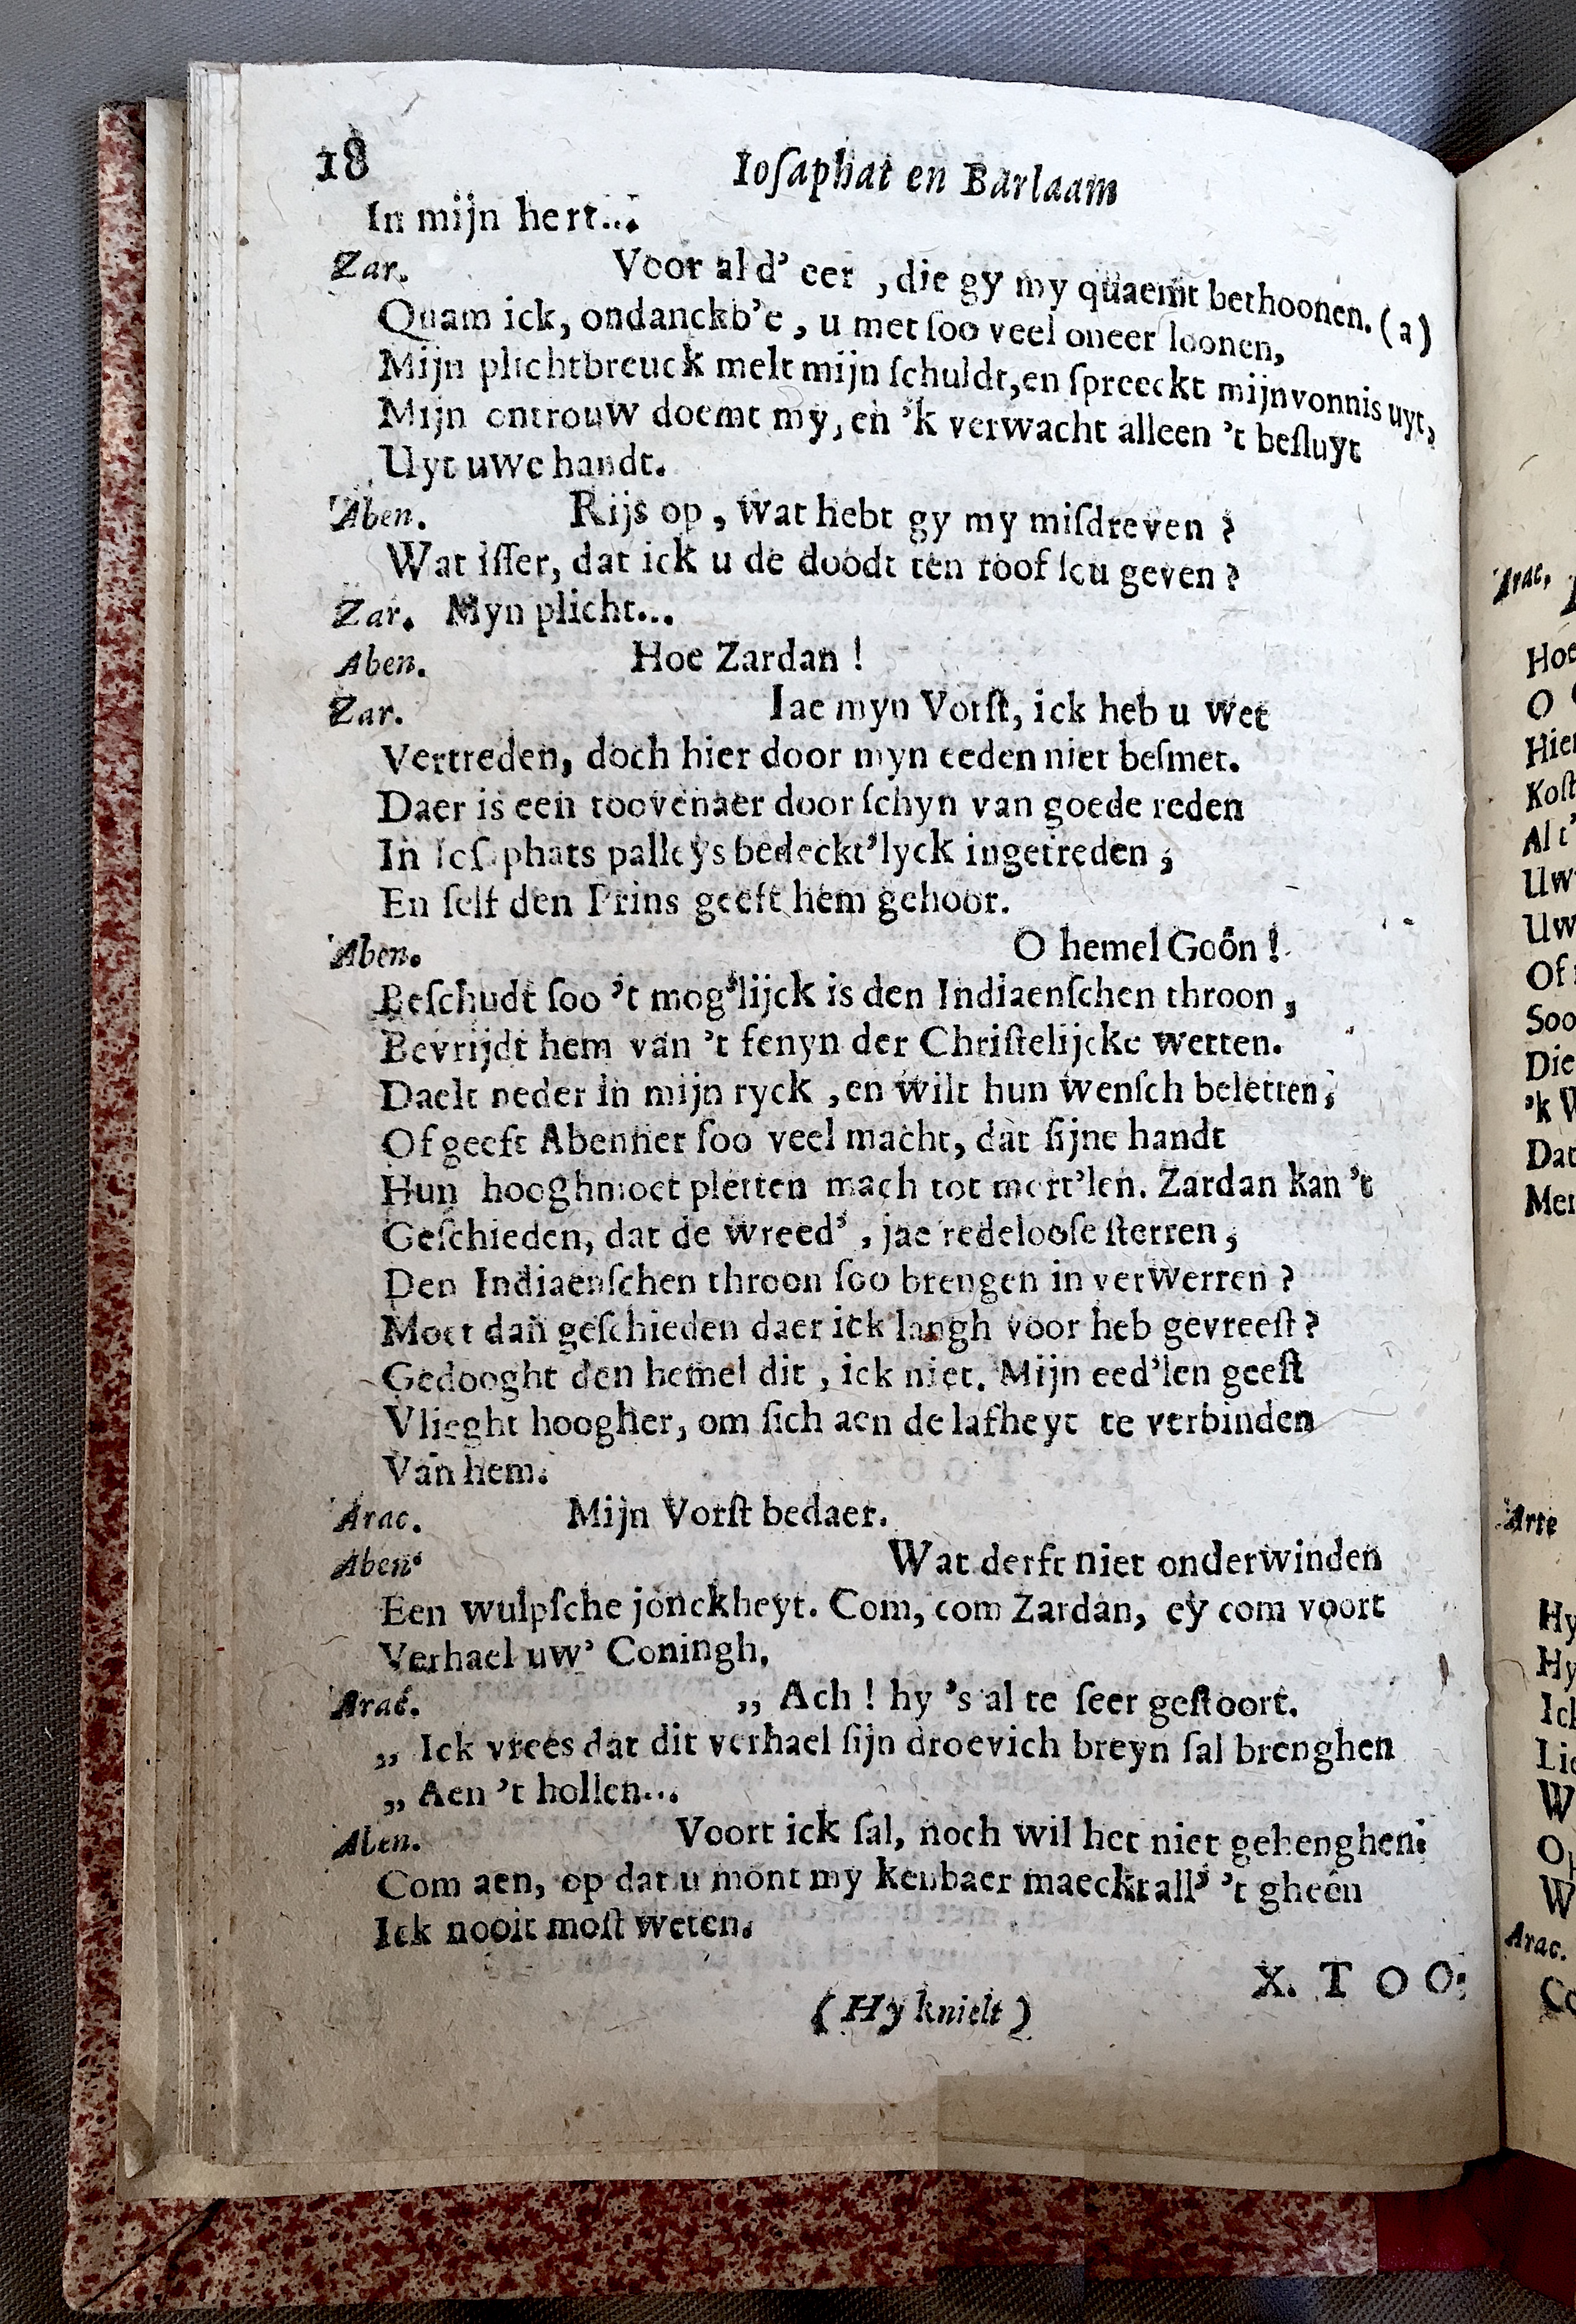 18 Ioſaphat en Barlaam
In mijn hert...
Zar. Voor al d' eer, die gy my quaemt bethoonen. (a)
Quam ick, ondanckb're, u met ſoo veel oneer loonen,
Mijn plichtbreuck melt mijn ſchuldt, en ſpreeckt mijn vonnis uyt,
Mijn ontrouw doemt my, en 'k verwacht alleen 't beſluyt
Uyt uwe handt.
Aben. Rijs op, wat hebt gy my miſdreven?
Wat iſſer, dat ick u de doodt ten roof ſou geven?
Zar. Myn plicht...
Aben. Hoe Zardan!
Zar. Iae myn Vorſt, ick heb u wet
Vertreden, doch hier door myn eeden niet beſmet.
Daer is een toovenaer door ſchyn van goede reden
In Ioſaphats palleys bedeckt'lyck ingetreden;
En ſelf den Prins geeft hem gehoor.
Aben. O hemel Goôn!
Beſchudt ſoo 't mog'lijck is den Indiaenſchen throon,
Bevrijdt hem van 't fenyn der Chriſtelijcke wetten.
Daelt neder in mijn ryck, en wilt hun wenſch beletten;
Of geeft Abenner ſoo veel macht, dat ſijne handt
Hun hooghmoet pletten mach tot mort'len. Zardan kan 't
Geſchieden, dat de wreed', jae redelooſe ſterren;
Den Indiaenſchen throon ſoo brengen in verwerren?
Moet dan geſchieden daer ick langh voor heb gevreeſt?
Gedooght den hemel dit, ick niet. Mijn eed'len geeſt
Vlieght hoogher, om ſich aen de lafheyt te verbinden
Van hem.
Arac. Mijn Vorſt bedaer.
Aben. Wat derft niet onderwinden
Een wulpſche jonckheyt. Com, com Zardan, ey com voort
Verhael uw' Coningh.
Arac. ,, Ach! hy 's al te ſeer geſtoort.
,, Ick vrees dat dit verhael ſijn droevich breyn ſal brenghen
,, Aen 't hollen...
Aben. Voort ick ſal, noch wil het niet gehenghen.
Com aen, op dat u mont my kenbaer maeckt all' 't gheên
Ick nooit moſt weten.
X. TOO:
(Hy knielt)
Arac,
Hoe
O
Hier
Koſt
Al t'
Uw
Uw
Of
Soo
Die
'k W
Dat
Met
Arte
Hy
Hy
Ick
Lie
W
Op
W
Arac.
Co